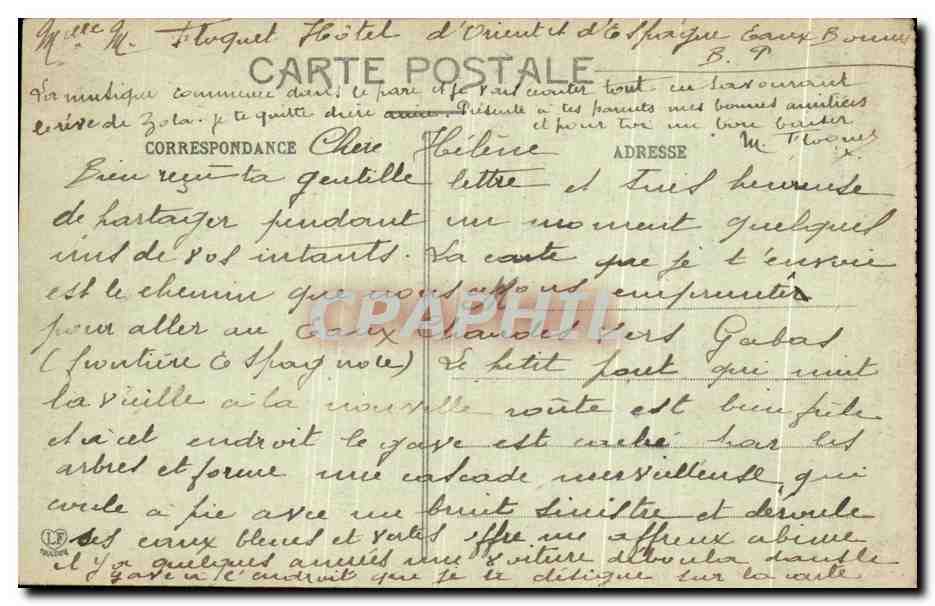 Melle M. Floquet Hôtel d'Orient et d'Espagne Eaux Bonnes
B. P
CARTE POSTALE
La musique commence dans le parc et je vais écouter tout en savourant
le rêve de Zola. je te quitte chère amie. Présente à tes parents mes bonnes amitiés
et pour toi un bon baiser
M. Floquet
CORRESPONDANCE Chere Hélène ADRESSE
Bien reçu ta gentille lettre et suis heureuse
de partager pendant un moment quelques
uns de vos instants. La carte que je t'envoie
est le chemin que nous allons emprunter
pour aller au Eaux Chaudes vers Gabas
(frontière Espagnole) Le petit pont qui unit
la vieille à la nouvelle route est bien frêle
et à cet endroit le gave est caché par les
arbres et forme une cascade merveilleuse qui
coule à pic avec un bruit sinistre et déroule
ses eaux bleues et vertes offre un affreux abime
il y a quelques années une voiture déboula dans le
gave à l'endroit que je te désigne sur la carte
LF
TOULOUSE
CPAPHIL